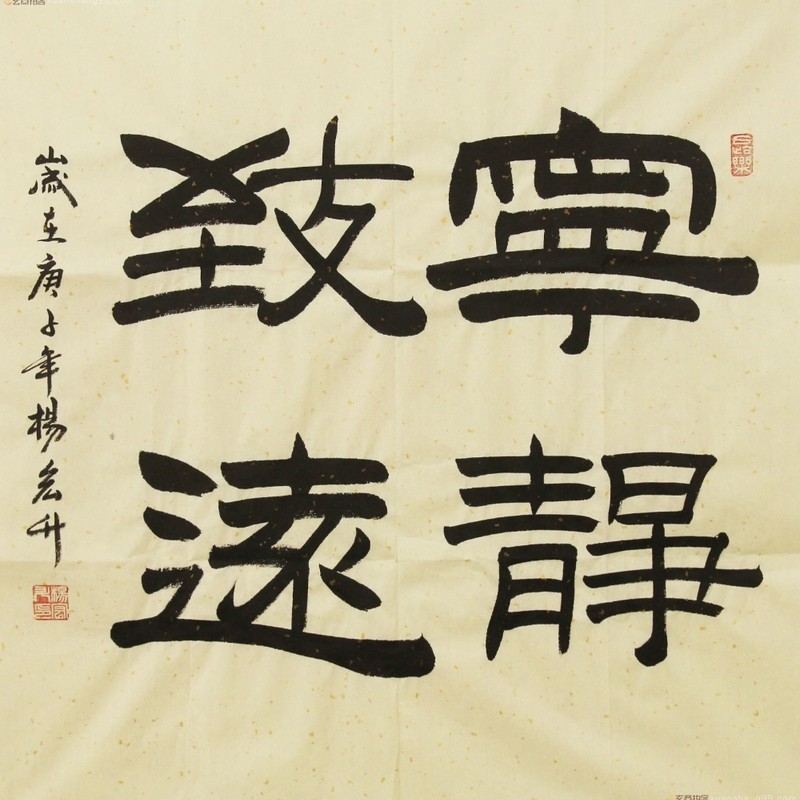 寧靜
致遠
歲在庚子年楊宏升